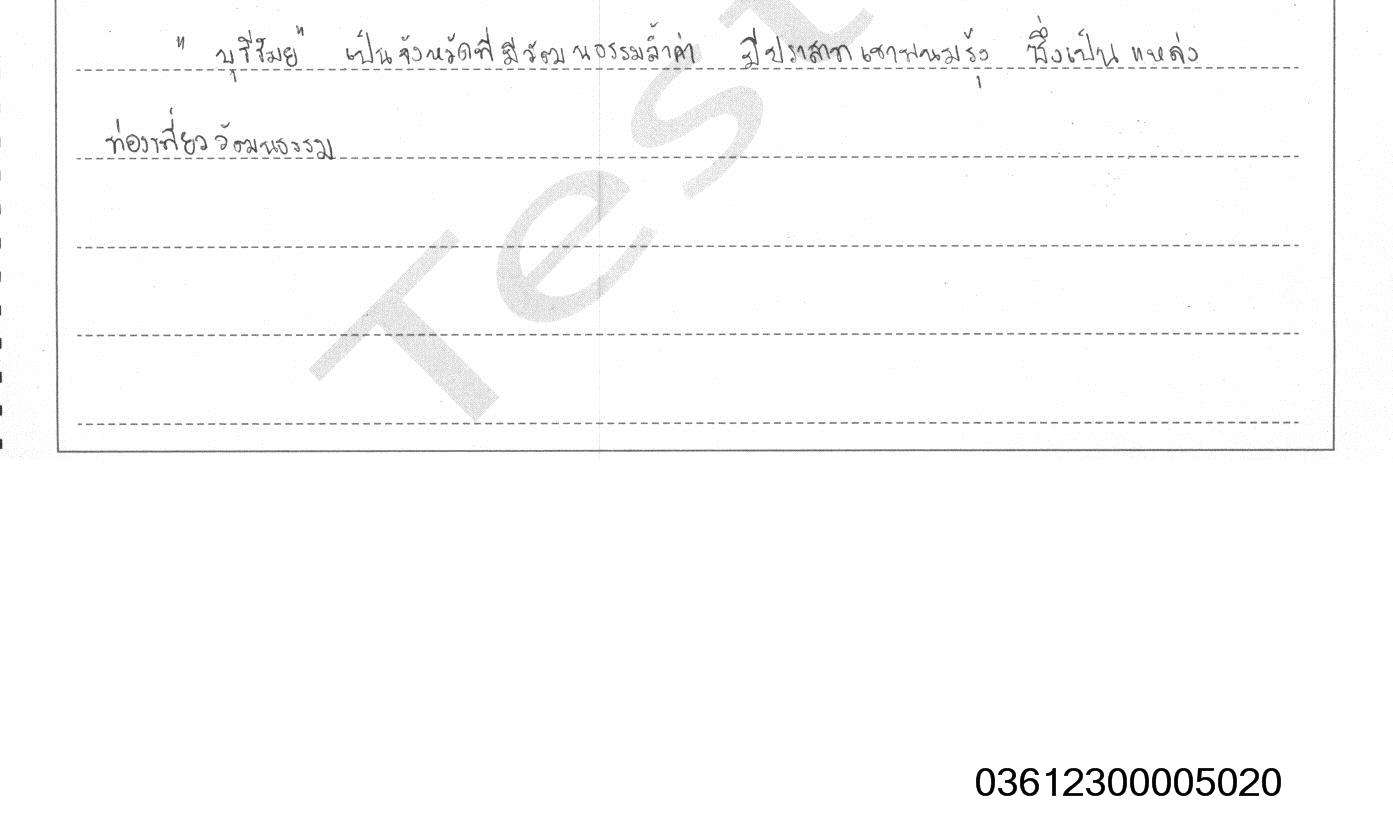 " บุรีรัมย์" เป็นจังหวัดที่ มีวัฒนธรรมล้ำค่า มีปราสาทเขาพนมรุ้ง ซึ่งเป็น แหล่ง
ท่องเที่ยววัฒนธรรม
Test
03612300005020